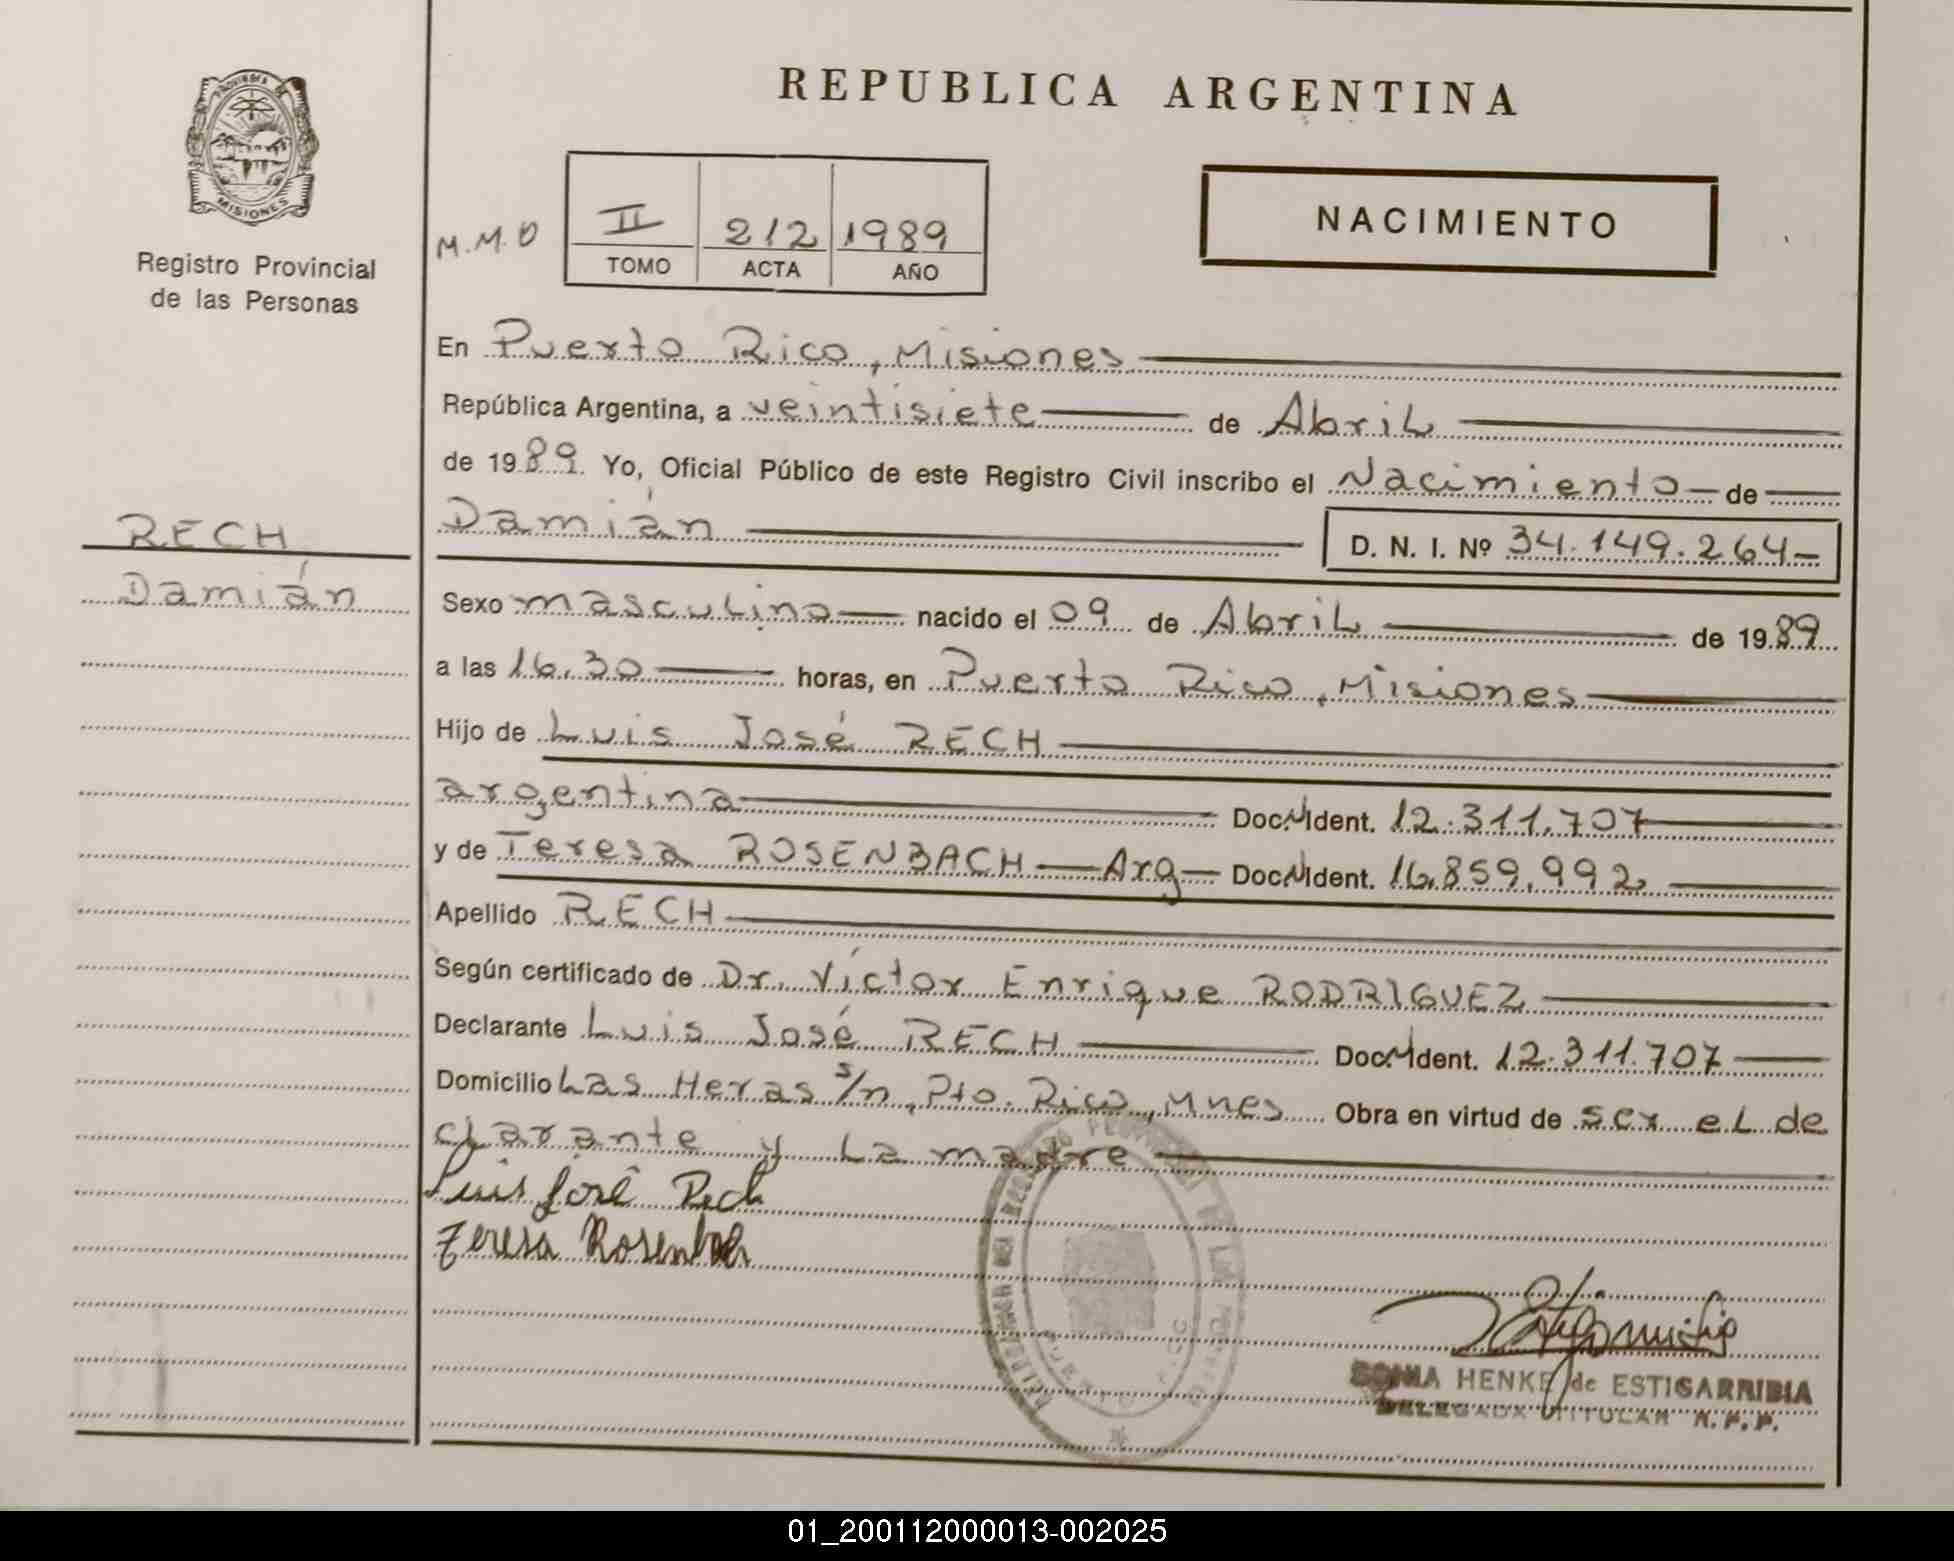 PROVINCIA
MISIONES
Registro Provincial
de las Personas
RECH
Damián
REPUBLICA ARGENTINA
M.M.O
II 212 1989
TOMO ACTA AÑO
NACIMIENTO
En Puerto Rico, Misiones
República Argentina, a veintisiete de Abril
de 1989. Yo, Oficial Público de este Registro Civil inscribo el Nacimiento de
Damián D. N. I. Nº 34.149.264
Sexo masculino nacido el 09 de Abril de 1989
a las 16.30 horas, en Puerto Rico, Misiones
Hijo de Luis José RECH
argentina Doc.N.Ident. 12.311.707
y de Teresa ROSENBACH Arg Doc.N.Ident. 16.859.992
Apellido RECH
Según certificado de Dr. Víctor Enrique RODRIGUEZ
Declarante Luis José RECH Doc.N.Ident. 12.311.707
Domicilio Las Heras s/n, Pto. Rico, Mnes Obra en virtud de ser el de
clarante y la madre
Luis José Rech
Teresa Rosenbach
SONIA HENKE de ESTIGARRIBIA
DELEGADA TITULAR R.P.P.
01_200112000013-002025